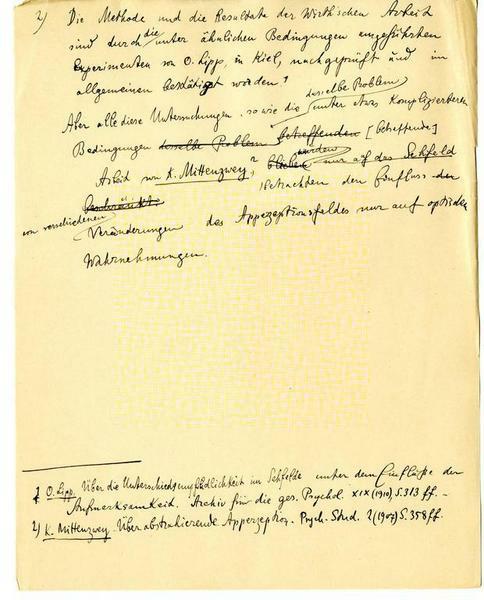 2) Die Methode und die Resultate der Wirthischen Arbeit
sind durch die unter ähnlichen Bedingungen angeführten
Experimenten von O. Lipp, in Kiel, nachgeprüft und im
allgemeinen bestätigt worden.¹
dasselbe Problem
Aber alle diese Untersuchungen, sowie die unter etwas Komplizierteren
Bedingungen dasselbe Problem betreffenden [betreffende]
wurden
Arbeit von K. Mittenzwey,² blieben nur auf das Sehfeld
beschränkt. betrachten den Einfluss den
von verschiedenen
Veränderungen des Apperzeptionsfeldes nur auf optischen
Wahrnehmungen.
1 O. Lipp. Über die Unterschiedsempfindlichkeit im Sehfelde unter dem Einflüße der
Aufmerksamkeit. Archiv für die ges. Psychol. XIX (1910) S. 313 ff. -
2) K. Mittenzwey. Über abstrahierende Apperzeption. Psych. Stud. 2 (1907) S. 358 ff.